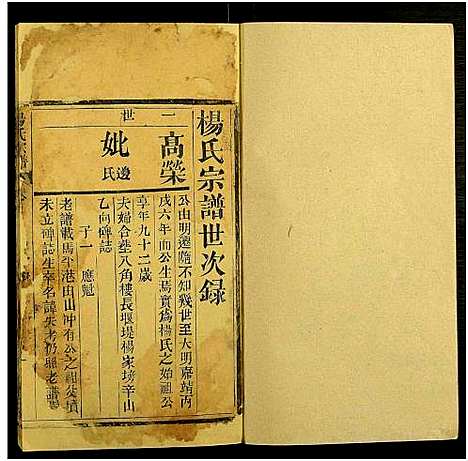 楊氏宗譜世次錄
一世
高榮
妣邊氏
公由明遷隨不知幾世至大明嘉靖丙
戌六年而公生焉實爲楊氏之始祖公
享年九十二歲
夫婦合塟八角樓長堰堤楊家塝辛山
乙向碑誌
子一　應魁
老譜載馬平港田山冲有公之祖父墳
未立碑誌生辛名諱失考仍照老譜
楊氏宗譜